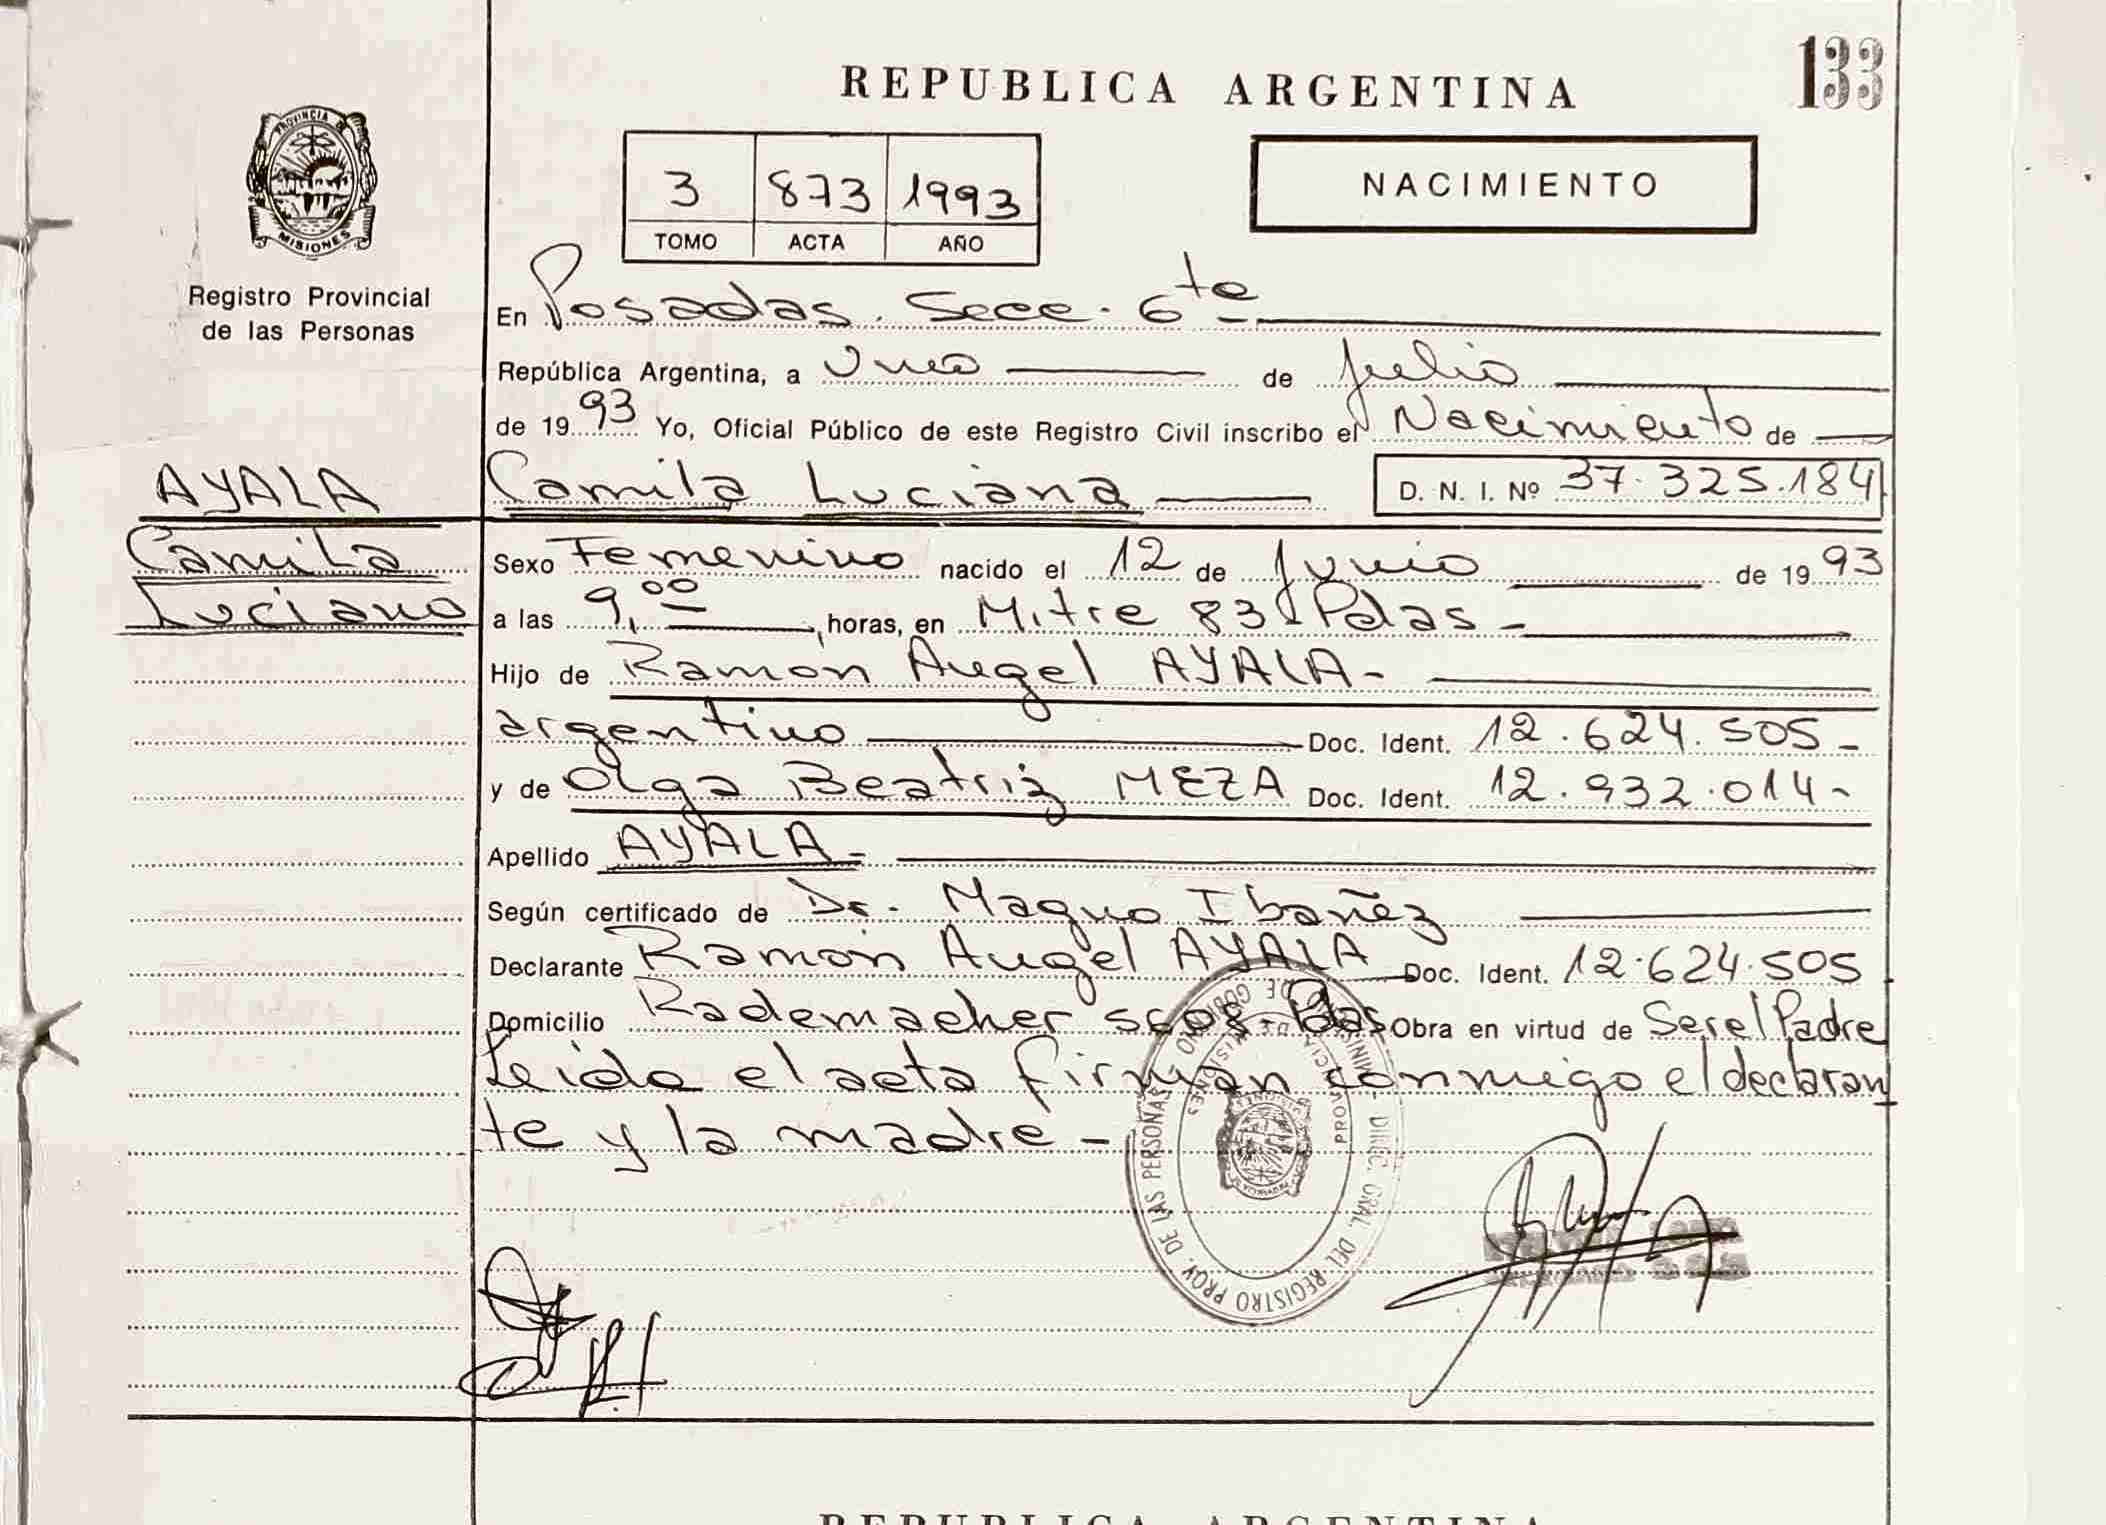 REPUBLICA ARGENTINA
133
PROVINCIA DE
MISIONES
Registro Provincial
de las Personas
3 873 1993
TOMO ACTA AÑO
NACIMIENTO
En Posadas. Secc. 6ta
República Argentina, a Uno de Julio
de 1993 Yo, Oficial Público de este Registro Civil inscribo el Nacimiento de
AYALA
Camila Luciana D. N. I. Nº 37.325.184
Camila
Luciana
Sexo Femenino nacido el 12 de Junio de 1993
a las 9,00 horas, en Mitre 83 Pdas -
Hijo de Ramón Angel AYALA-
argentino Doc. Ident. 12.624.505-
y de Olga Beatriz MEZA Doc. Ident. 12.932.014-
Apellido AYALA-
Según certificado de Dr. Magno Ibañez
Declarante Ramón Angel AYALA Doc. Ident. 12.624.505
Domicilio Rademacher Pdas Obra en virtud de Ser el Padre
Leída el acta firman conmigo el declaran
te y la madre -
MINISTERIO DE GOBIERNO - DIREC. GRAL. DEL REGISTRO PROV. DE LAS PERSONAS
PROVINCIA DE MISIONES
REPUBLICA ARGENTINA